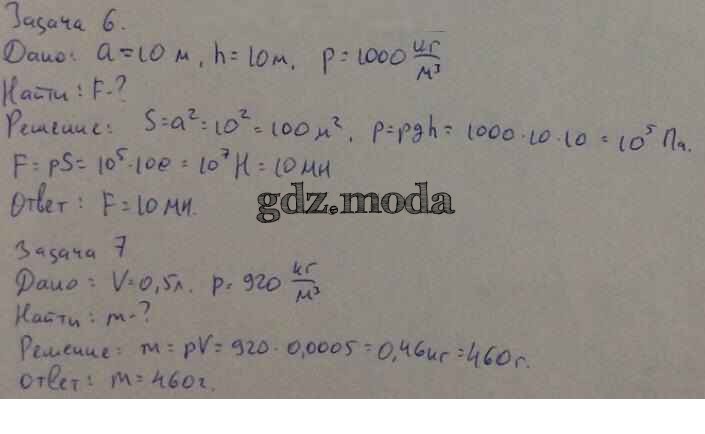 Задача 6.
Дано: a=10 м, h=10м, p=1000 кг/м³
Найти: F-?
Решение: S=a²=10²=100м², p=pgh=1000·10·10=10⁵ Па.
F=pS=10⁵·100=10⁷Н=10МН
Ответ: F=10МН.
gdz.moda
Задача 7
Дано: V=0,5л. p=920 кг/м³
Найти: m-?
Решение: m=pV=920·0,0005=0,46кг=460г.
Ответ: m=460г.